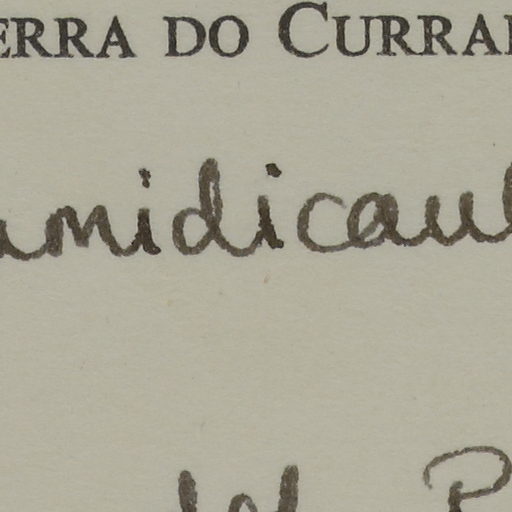 ERRA DO CURRAL
umidicaul